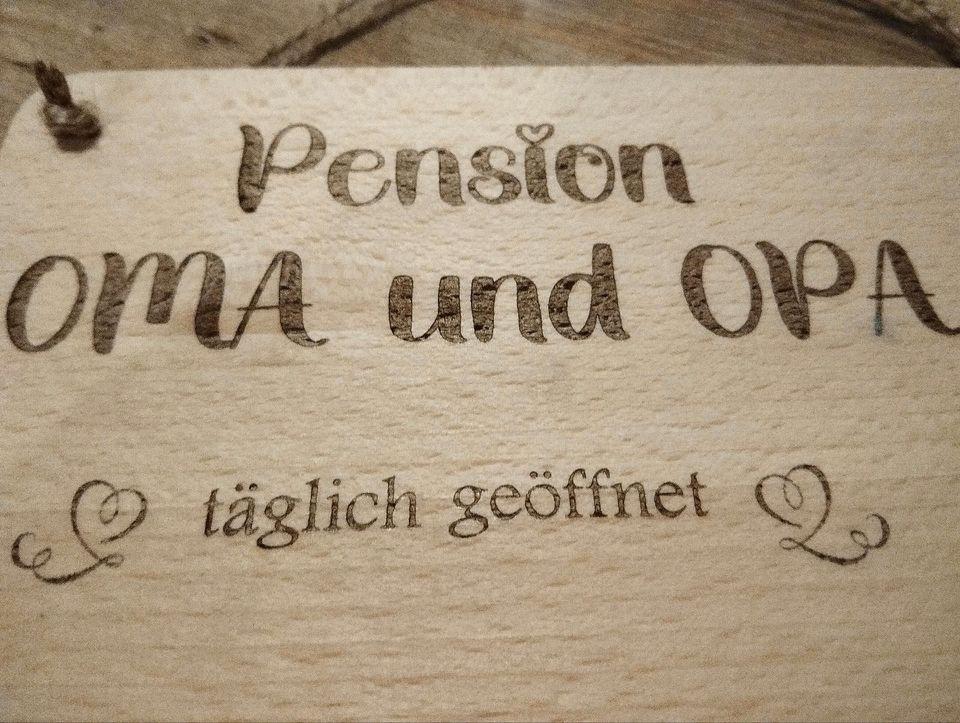 Pension
OMA und OPA
täglich geöffnet